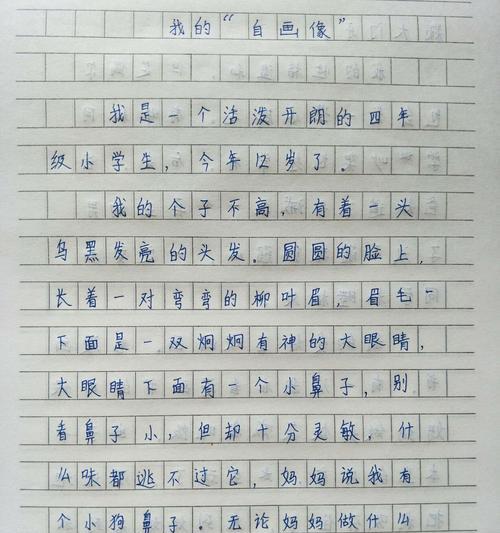 我的“自画像”
我是一个活泼开朗的四年
级小学生，今年12岁了。
我的个子不高，有着一头
乌黑发亮的头发。圆圆的脸上，
长着一对弯弯的柳叶眉，眉毛
下面是一双炯炯有神的大眼睛，
大眼睛下面有一个小鼻子，别
看鼻子小，但却十分灵敏，什
么味都逃不过它，妈妈说我有
个小狗鼻子。无论妈妈做什么